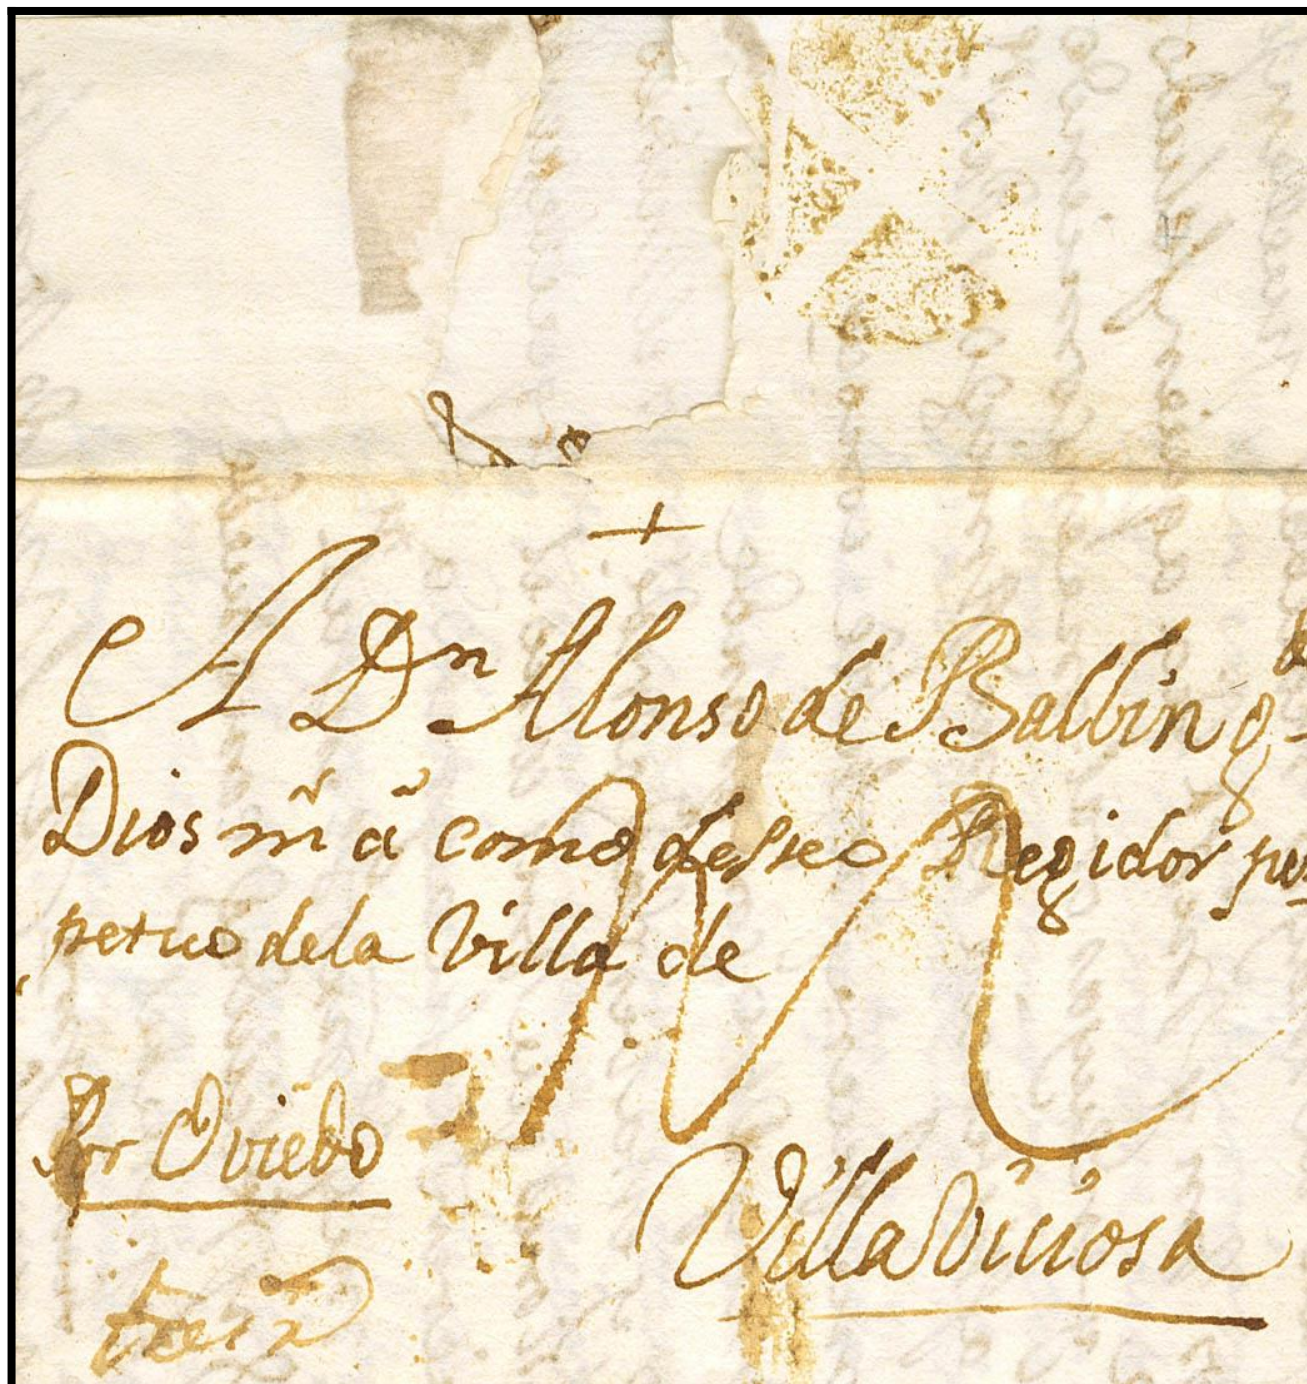 +
A Dn Alonso de Balbin g de
Dios m̃ ã como desseo Regidor per
petuo dela Villa de
Por Oviedo
Villa Viciosa